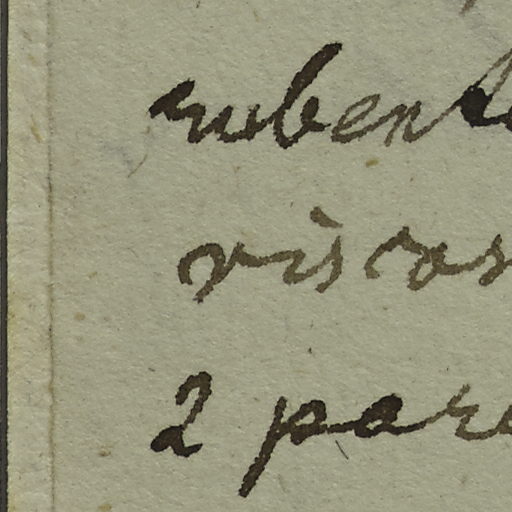 rubent
viscos
2 para